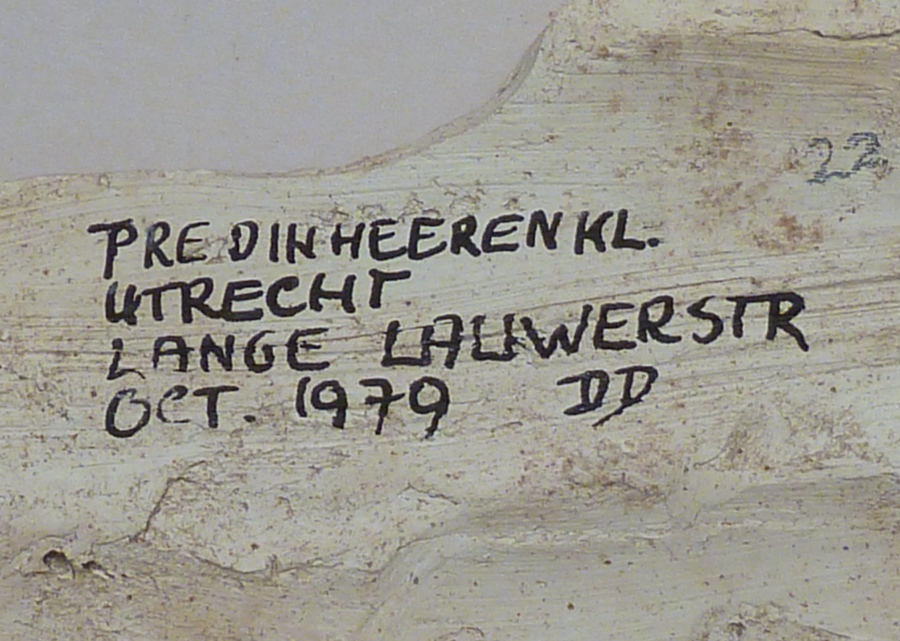 22
PREDINHEEREN KL.
UTRECHT
LANGE LAUWERSTR
OCT. 1979 DD